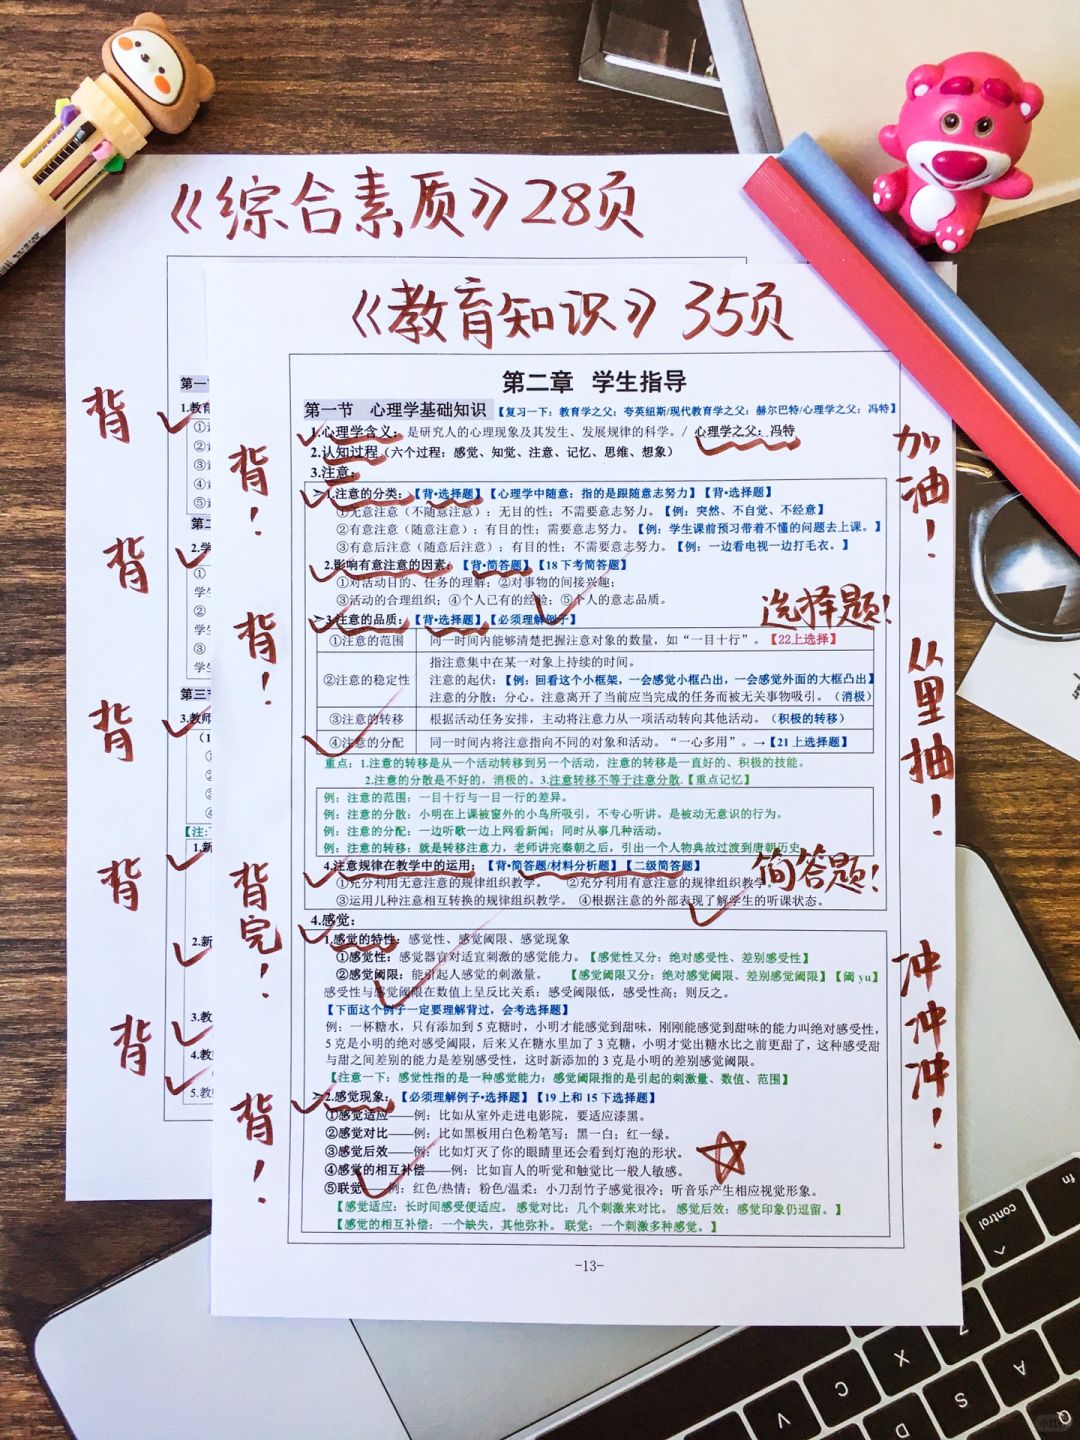 《综合素质》28页
《教育知识》35页
第二章 学生指导
第一节 心理学基础知识 【复习一下：教育学之父：夸英纽斯/现代教育学之父：赫尔巴特/心理学之父：冯特】
1.心理学含义：是研究人的心理现象及其发生、发展规律的科学。/ 心理学之父：冯特
2.认知过程（六个过程：感觉、知觉、注意、记忆、思维、想象）
3.注意：
➢1.注意的分类：【背·选择题】【心理学中随意：指的是跟随意志努力】【背·选择题】
①无意注意（不随意注意）：无目的性；不需要意志努力。【例：突然、不自觉、不经意】
②有意注意（随意注意）：有目的性；需要意志努力。【例：学生课前预习带着不懂的问题去上课。】
③有意后注意（随意后注意）：有目的性；不需要意志努力。【例：一边看电视一边打毛衣。】
2.影响有意注意的因素：【背·简答题】【18下考简答题】
①对活动目的、任务的理解；②对事物的间接兴趣；
③活动的合理组织；④个人已有的经验；⑤个人的意志品质。
➢3.注意的品质：【背·选择题】【必须理解例子】
①注意的范围 同一时间内能够清楚把握注意对象的数量，如“一目十行”。【22上选择】
②注意的稳定性 指注意集中在某一对象上持续的时间。
注意的起伏：【例：回看这个小框架，一会感觉小框凸出，一会感觉外面的大框凸出】
注意的分散：分心。注意离开了当前应当完成的任务而被无关事物吸引。（消极）
③注意的转移 根据活动任务安排，主动将注意力从一项活动转向其他活动。（积极的转移）
④注意的分配 同一时间内将注意指向不同的对象和活动。“一心多用”。→【21上选择题】
重点：1.注意的转移是从一个活动转移到另一个活动，注意的转移是一直好的、积极的技能。
2.注意的分散是不好的，消极的。3.注意转移不等于注意分散.【重点记忆】
例：注意的范围：一目十行与一目一行的差异。
例：注意的分散：小明在上课被窗外的小鸟所吸引，不专心听讲。是被动无意识的行为。
例：注意的分配：一边听歌一边上网看新闻；同时从事几种活动。
例：注意的转移：就是转移注意力，老师讲完秦朝之后，引出一个人物典故过渡到唐朝历史
4.注意规律在教学中的运用：【背·简答题/材料分析题】【二级简答题】
①充分利用无意注意的规律组织教学。 ②充分利用有意注意的规律组织教学。
③运用几种注意相互转换的规律组织教学。 ④根据注意的外部表现了解学生的听课状态。
4.感觉：
1.感觉的特性：感觉性、感觉阈限、感觉现象
①感觉性：感觉器官对适宜刺激的感觉能力。【感觉性又分：绝对感受性、差别感受性】
②感觉阈限：能引起人感觉的刺激量。 【感觉阈限又分：绝对感觉阈限、差别感觉阈限】【阈yu】
感受性与感觉阈限在数值上呈反比关系：感受阈限低，感受性高；则反之。
【下面这个例子一定要理解背过，会考选择题】
例：一杯糖水，只有添加到5克糖时，小明才能感觉到甜味，刚刚能感觉到甜味的能力叫绝对感受性，
5克是小明的绝对感受阈限，后来又在糖水里加了3克糖，小明才觉出糖水比之前更甜了，这种感受甜
与甜之间差别的能力是差别感受性，这时新添加的3克是小明的差别感觉阈限。
【注意一下：感觉性指的是一种感觉能力：感觉阈限指的是引起的刺激量、数值、范围】
➢2.感觉现象：【必须理解例子·选择题】【19上和15下选择题】
①感觉适应——例：比如从室外走进电影院，要适应漆黑。
②感觉对比——例：比如黑板用白色粉笔写；黑一白；红一绿。
③感觉后效——例：比如灯灭了你的眼睛里还会看到灯泡的形状。
④感觉的相互补偿——例：比如盲人的听觉和触觉比一般人敏感。
⑤联觉——例：红色/热情；粉色/温柔；小刀刮竹子感觉很冷；听音乐产生相应视觉形象。
【感觉适应：长时间感受便适应。感觉对比：几个刺激来对比。感觉后效：感觉印象仍逗留。】
【感觉的相互补偿：一个缺失，其他弥补。联觉：一个刺激多种感觉。】
-13-
背
背
背
背
背
背！
背！
背完！
背！
加油！
选择题！
从里抽！
简答题！
冲冲冲！
第一
1.教育
①
②
③
④
⑤
第二
2.学
①
学生
②
学生
③
学生
第三
3.教师
（1
①
②
③
④
【注：
1.新
2.新
3.教
4.教
5.教
control
fn
Z
X
C
V
A
S
D
Q